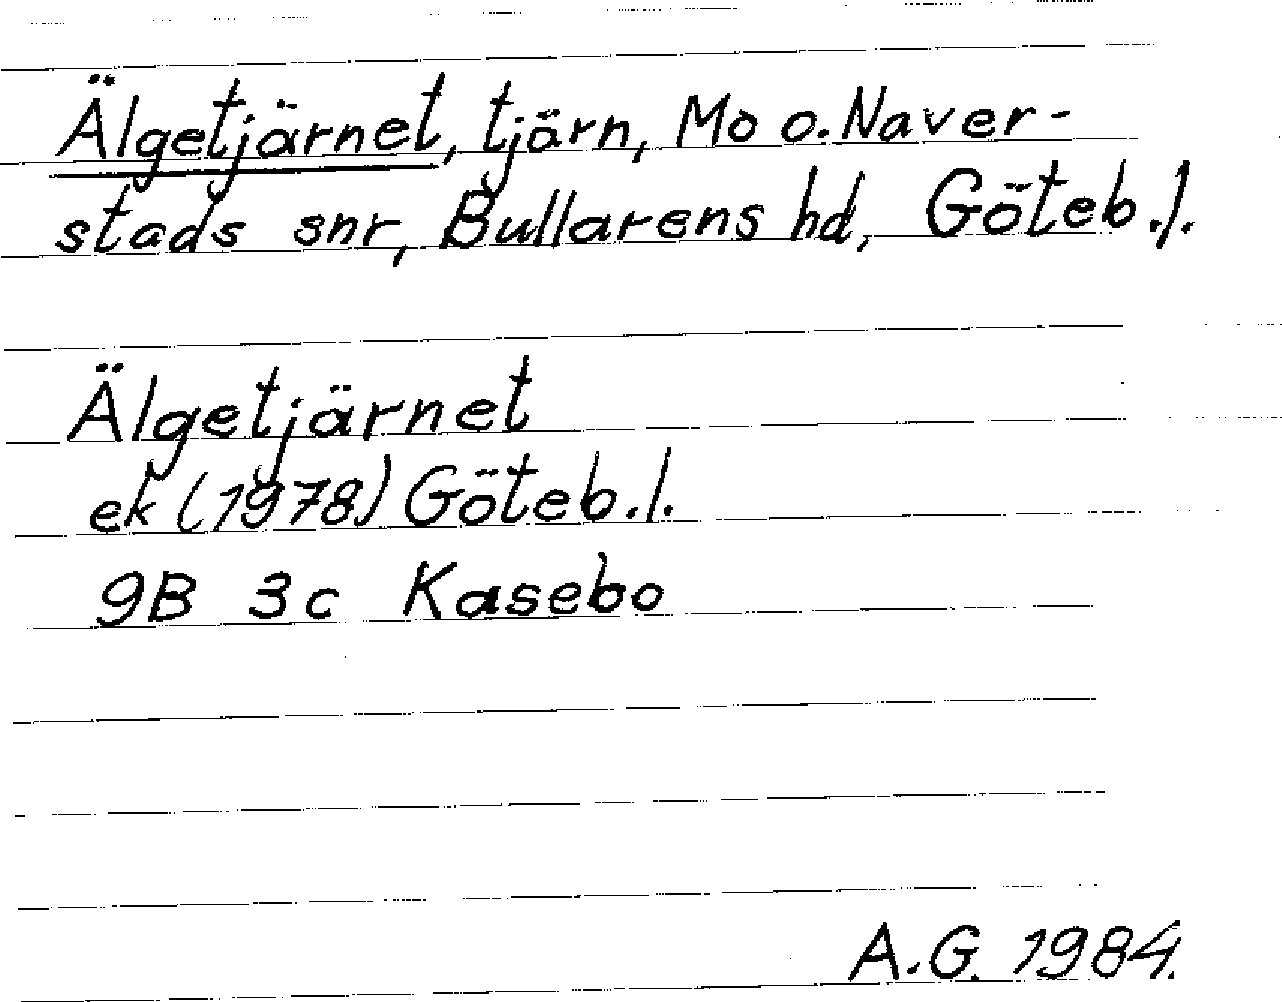 Älgetjärnet, tjärn, Mo o. Naver-
stads snr, Bullarens hd, Göteb.l.
Älgetjärnet
ek (1978) Göteb.l.
9B 3c Kasebo
A.G. 1984.